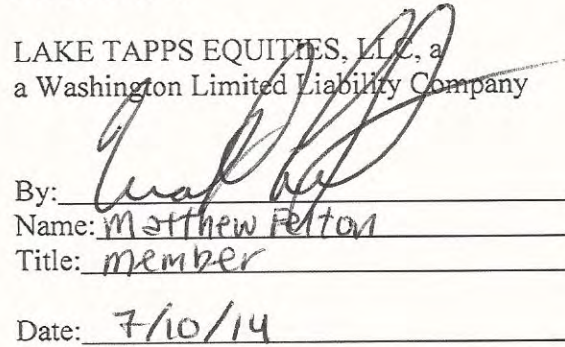 LAKE TAPPS EQUITIES, LLC, a
a Washington Limited Liability Company
By:
Name: Matthew Pelton
Title: member
Date: 7/10/14